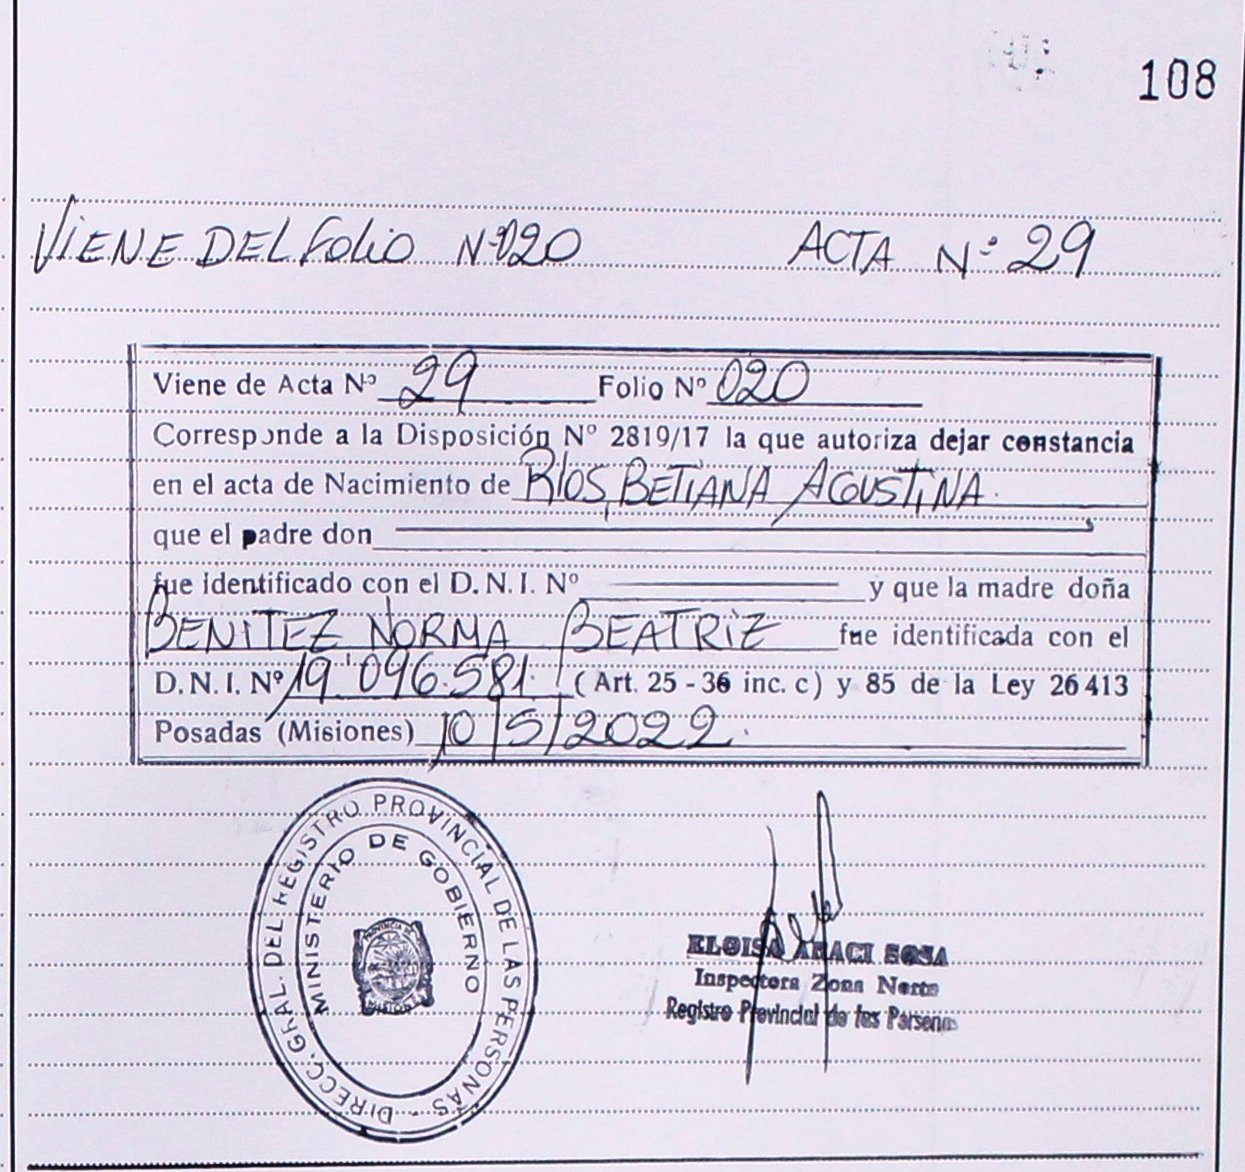 108
VIENE DEL Folio Nº 020 ACTA Nº 29
Viene de Acta Nº 29 Folio Nº 020
Corresponde a la Disposición Nº 2819/17 la que autoriza dejar constancia
en el acta de Nacimiento de RIOS, BETIANA AGUSTINA.
que el padre don
fue identificado con el D.N.I. Nº y que la madre doña
BENITEZ NORMA BEATRIZ fue identificada con el
D.N.I. Nº 19.096.581. (Art. 25 - 36 inc. c) y 85 de la Ley 26413
Posadas (Misiones) 10/5/2022.
DIRECC. GRAL. DEL REGISTRO PROVINCIAL DE LAS PERSONAS -
MINISTERIO DE GOBIERNO
PROVINCIA DE
MISIONES
ELOISA ARACI SOSA
Inspectora Zona Norte
Registro Provincial de las Personas